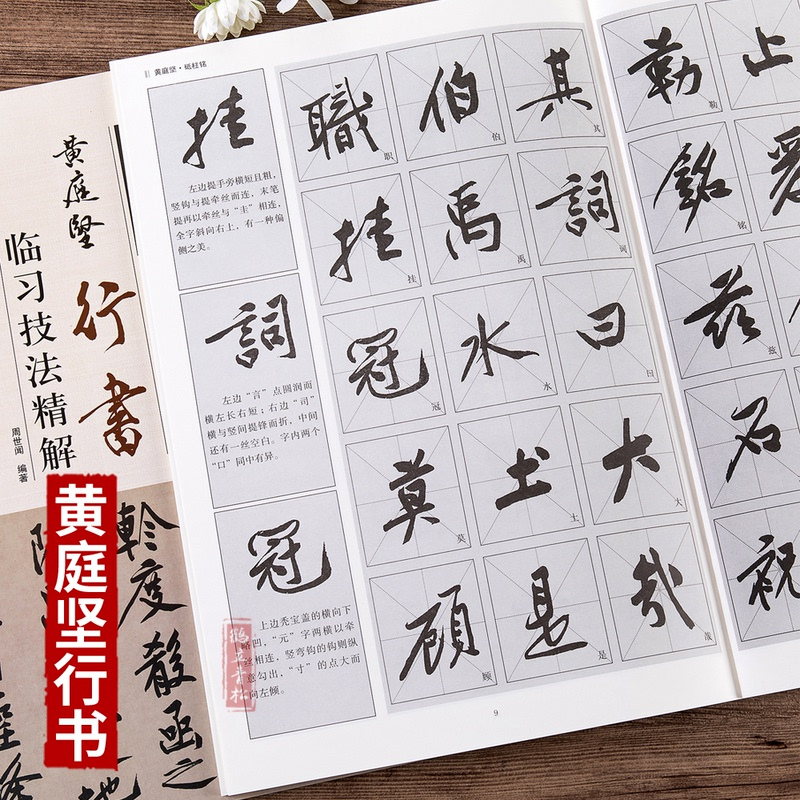 黄庭坚
行書
临习技法精解
周世闻 编著
黄庭坚行书
黄庭坚·砥柱铭
挂
左边提手旁横短且粗，
竖钩与提牵丝而连，末笔
提再以牵丝与“圭”相连，
全字斜向右上，有一种偏
侧之美。
詞
左边“言”点圆润而
横左长右短；右边“司”
横与竖间提锋而折，中间
还有一丝空白。字内两个
“口”同中有异。
冠
上边秃宝盖的横向下
略凹，“元”字两横以牵
丝相连，竖弯钩的钩则纵
意勾出，“寸”的点大而
向左倾。
其 其
詞 词
曰 曰
大 大
哉 哉
伯 伯
禹 禹
水 水
土 土
是 是
職 职
挂 挂
冠 冠
莫 莫
顧 顾
9
止
勒 勒
銘 铭
兹 兹
石
祝